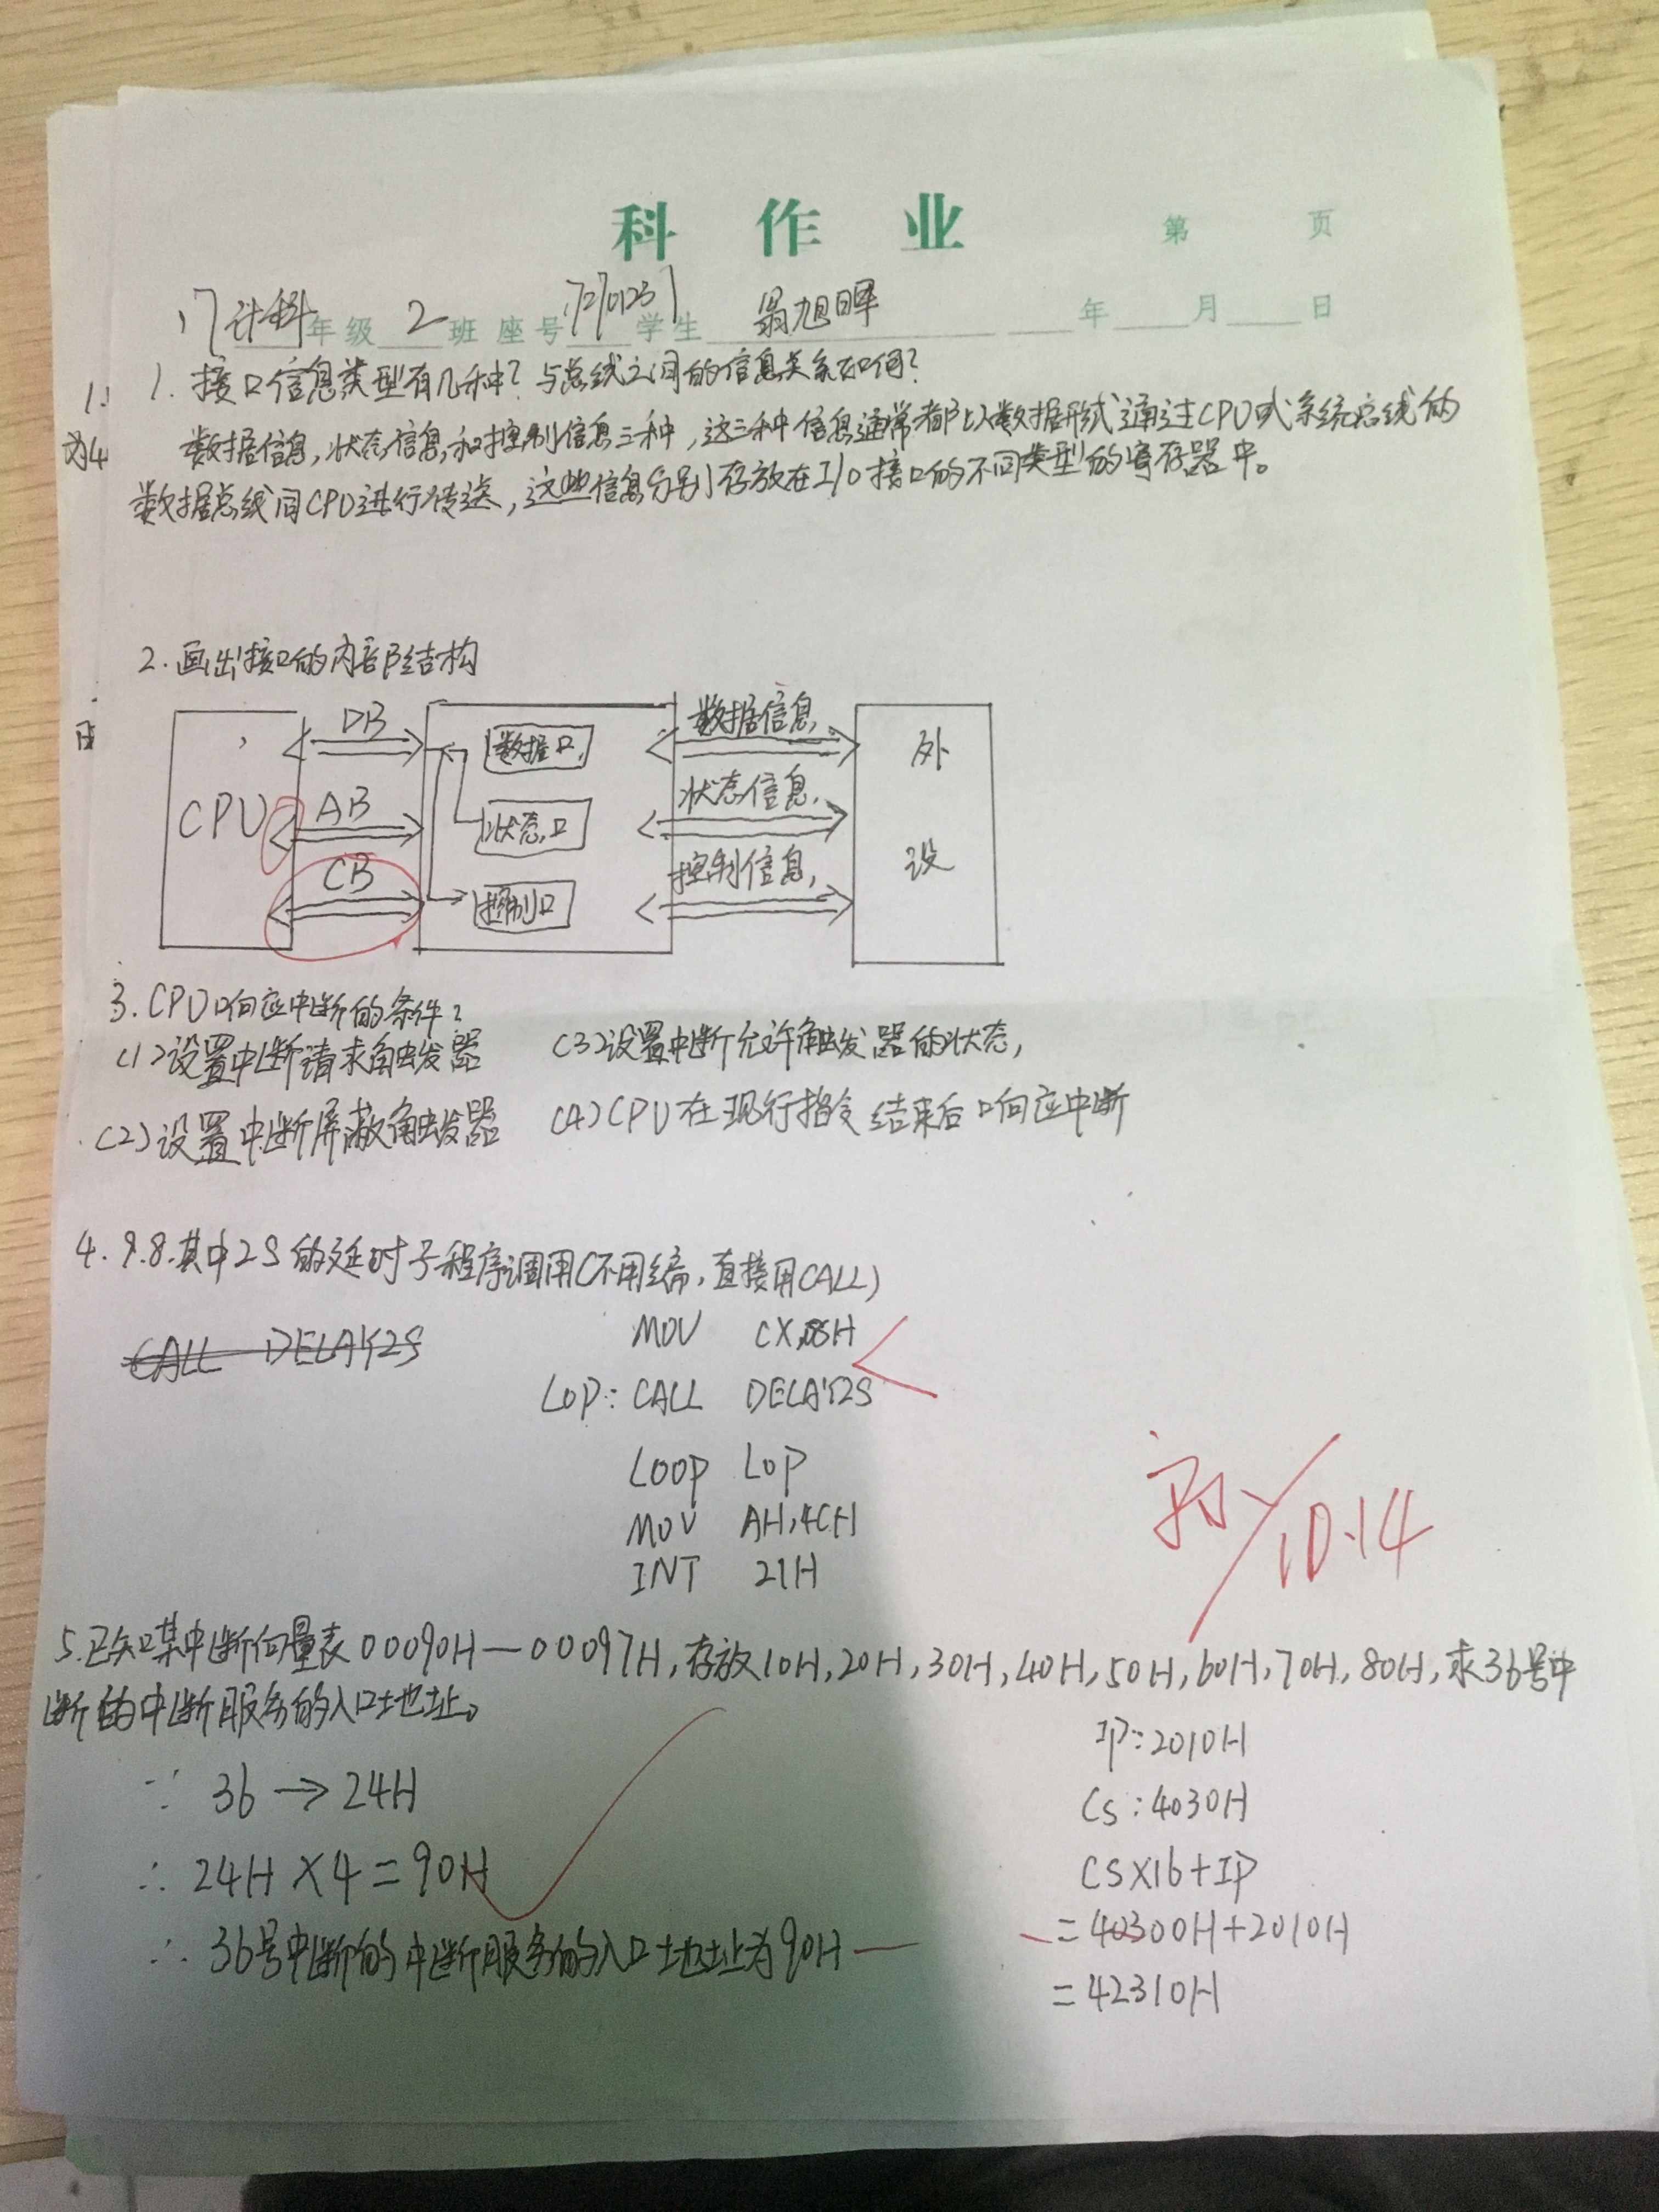 科 作 业 第 页
17计科 年级 2 班 座号 学生 翁旭晖 年 月 日
1. 接口信息类型有几种?与总线之间的信息关系如何?
数据信息,状态信息,和控制信息三种,这三种信息通常都以数据形式通过CPU或系统总线的
数据总线同CPU进行传送,这些信息分别存放在I/O接口的不同类型的寄存器中。
2.画出接口的内部结构
DB 数据信息
数据口 外
CPU AB 状态信息
状态口
CB 控制信息 设
控制口
3.CPU响应中断的条件?
(1)设置中断请求触发器 (3)设置中断允许触发器的状态,
(2)设置中断屏蔽触发器 (4)CPU在现行指令结束后响应中断
4.9.8.其中2S的延时子程序调用(不用编,直接用CALL)
CALL DELAY2S
MOV CX,08H
LOP: CALL DELAY2S
LOOP LOP
MOV AH,4CH
INT 21H
10.14
5.已知某中断向量表00090H—00097H,存放10H,20H,30H,40H,50H,60H,70H,80H,求36号中
断的中断服务的入口地址。
∵ 36 → 24H
∴ 24H×4=90H
∴ 36号中断的中断服务的入口地址为90H
IP:2010H
CS:4030H
CS×16+IP
=40300H+2010H
=42310H